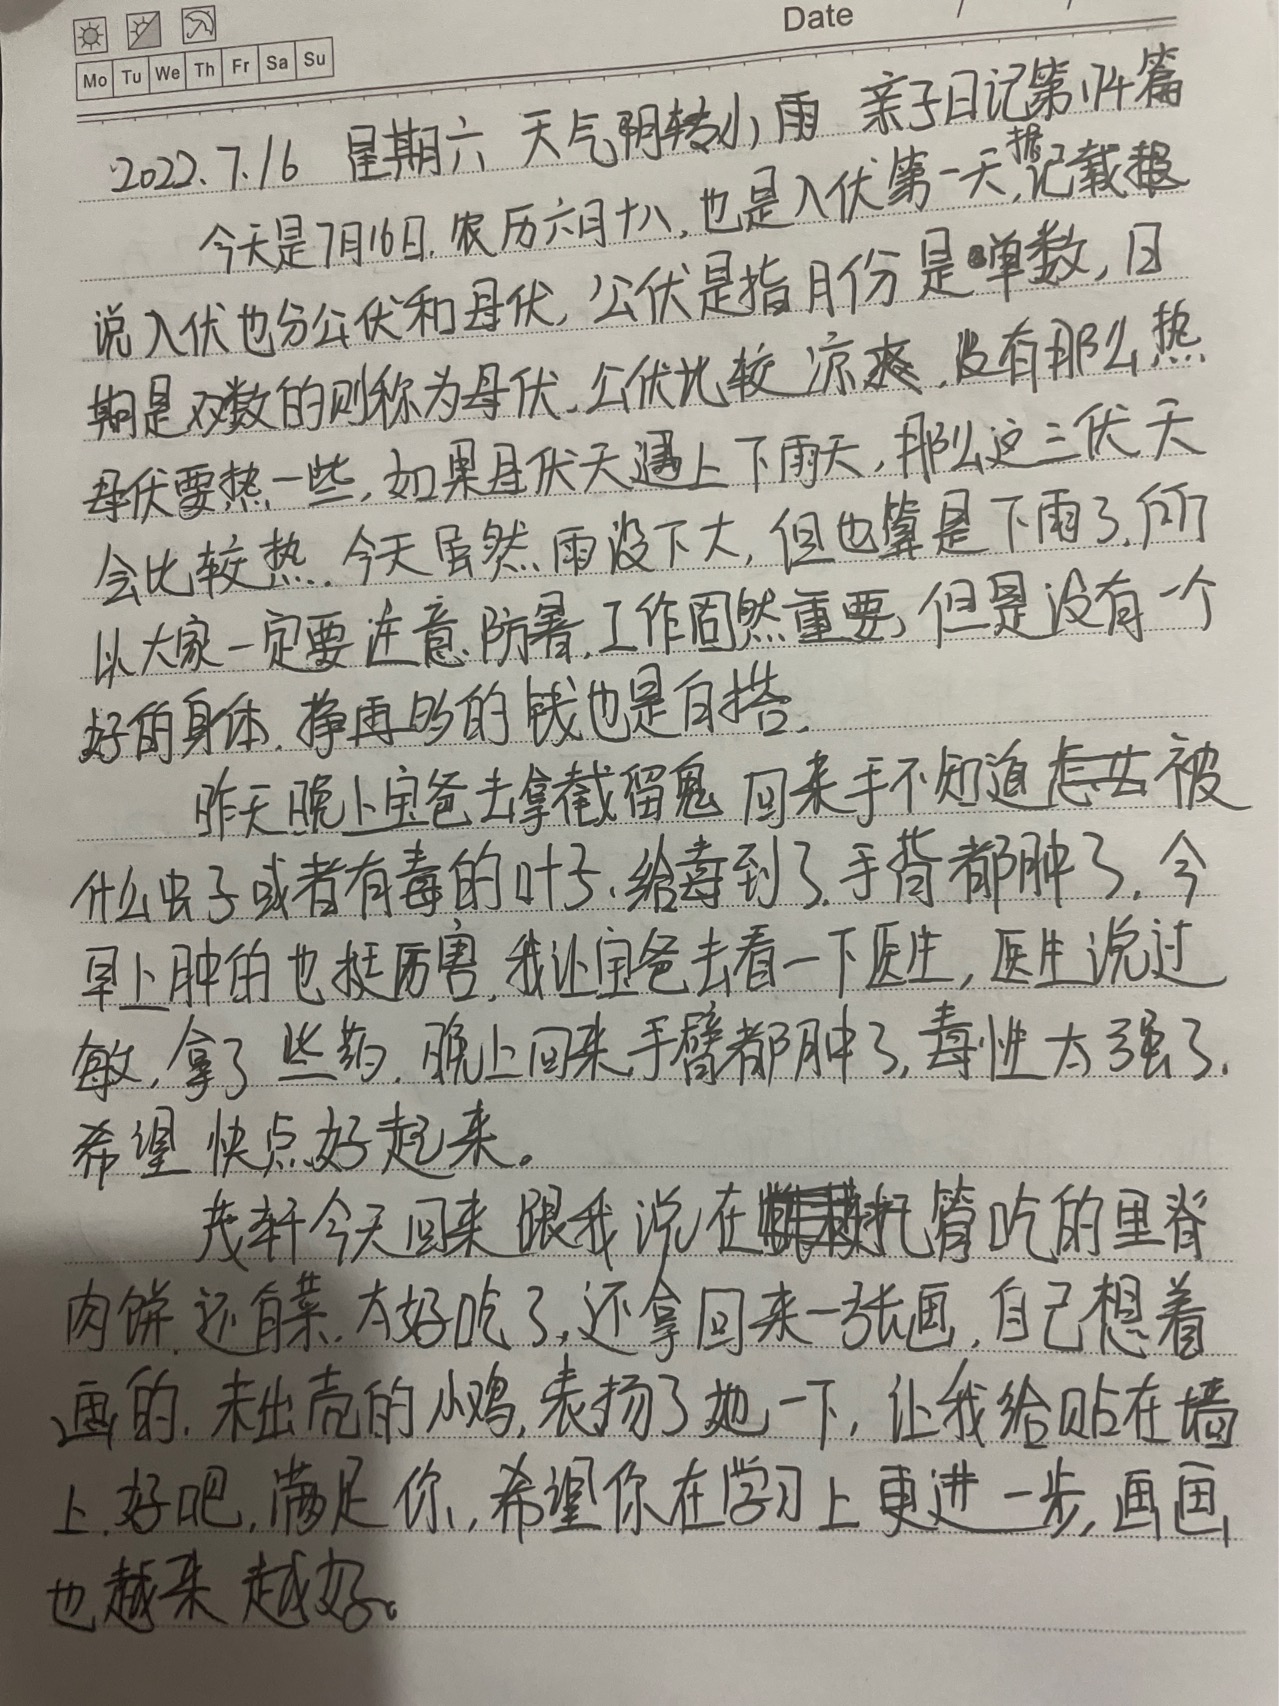 Date
Mo Tu We Th Fr Sa Su
2022.7.16 星期六 天气阴转小雨 亲子日记第174篇
今天是7月16日.农历六月十八,也是入伏第一天,据记载报
说入伏也分公伏和母伏,公伏是指月份是单数,日
期是双数的则称为母伏.公伏比较凉爽,没有那么热
母伏要热一些,如果母伏天遇上下雨天,那么这三伏天
会比较热.今天虽然雨没下大,但也算是下雨了.所
以大家一定要注意防暑.工作固然重要,但是没有一个
好的身体.挣再多的钱也是白搭.
昨天晚上宝爸去拿截留鬼 回来手不知道怎么被
什么虫子或者有毒的叶子、给毒到了.手背都肿了.今
早上肿的也挺厉害,我让宝爸去看一下医生,医生说过
敏,拿了些药.晚上回来手臂都肿了,毒性太强了.
希望快点好起来。
茂轩今天回来跟我说在托管吃的里脊
肉饼,还有菜.太好吃了,还拿回来一张画,自己想着
画的,未出壳的小鸡,表扬了她一下,让我给贴在墙
上,好吧,满足你,希望你在学习上更进一步,画画
也越来越好。